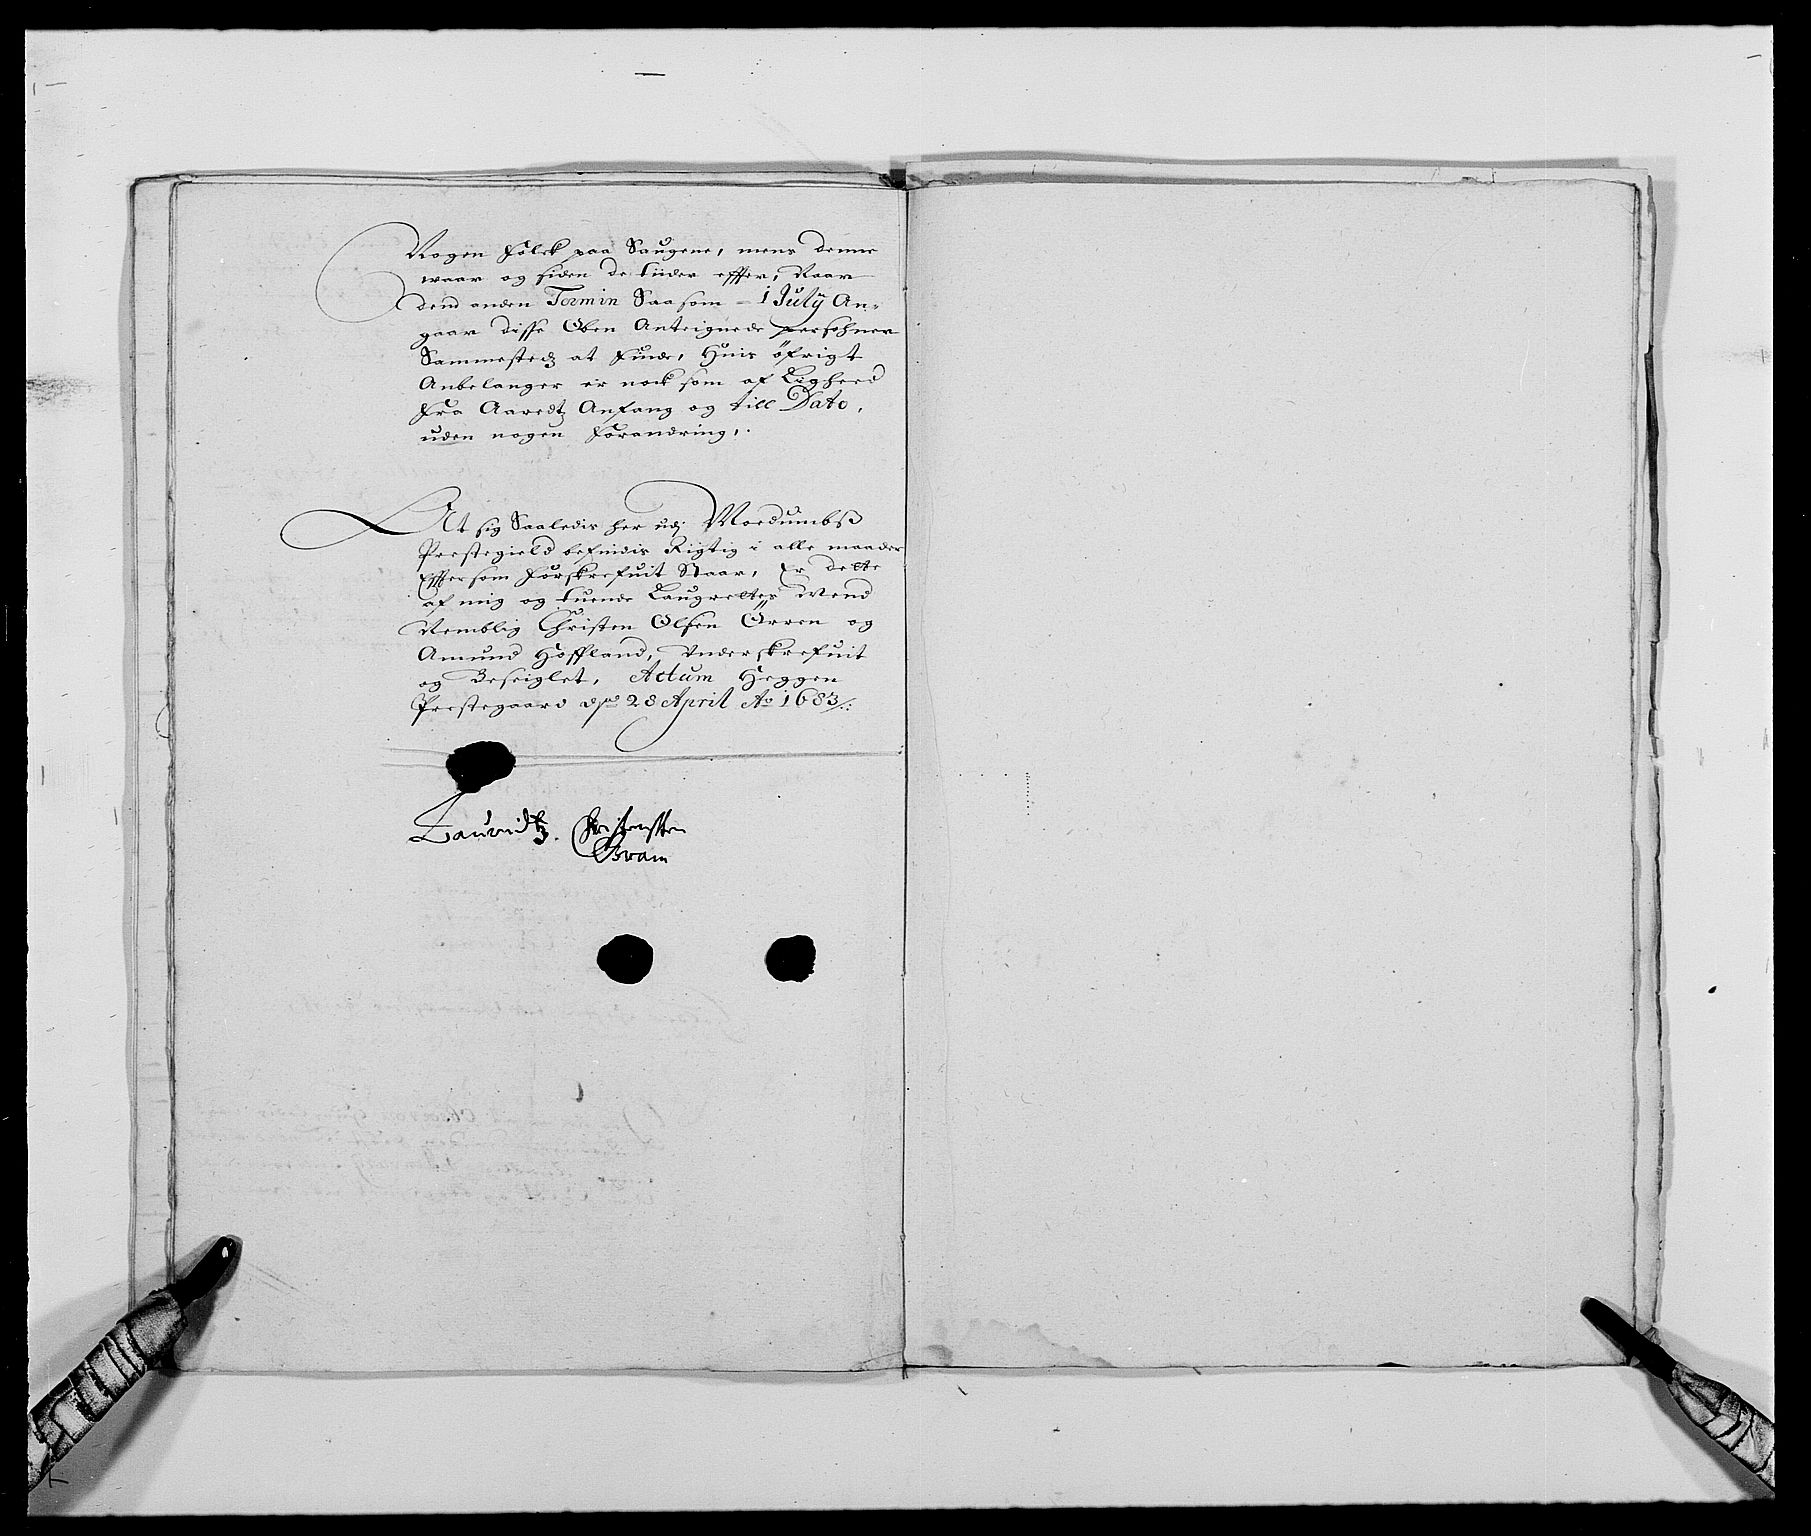 Nogen Folck paa Saugene, mens denne
waar og siden de tider effter, Naar
dend anden Termin Saasom - 1 July An-
gaar disse Oben Anteignede persohner
Sammestedz at finde, Huis öfrigt
Anbelanger er nock som af Ligheed
Fra Aaredtz Anfang og till Dato,
uden nogen forandring,.
At sig Saaledis her udj Moedumbß
Prestegield befindis Rigtig i alle maader
Effter som forskrefuit Staar, Er dette
af mig og tuende Laugrettes Mend
Nemblig Christen Olsen Grren og
Amund Hoffland, Underskrefuit
og Beseiglet, Actum Heggen
Prestegaard dend 28 April Ao 1683/:
Lauridtz. Christensen
Gram